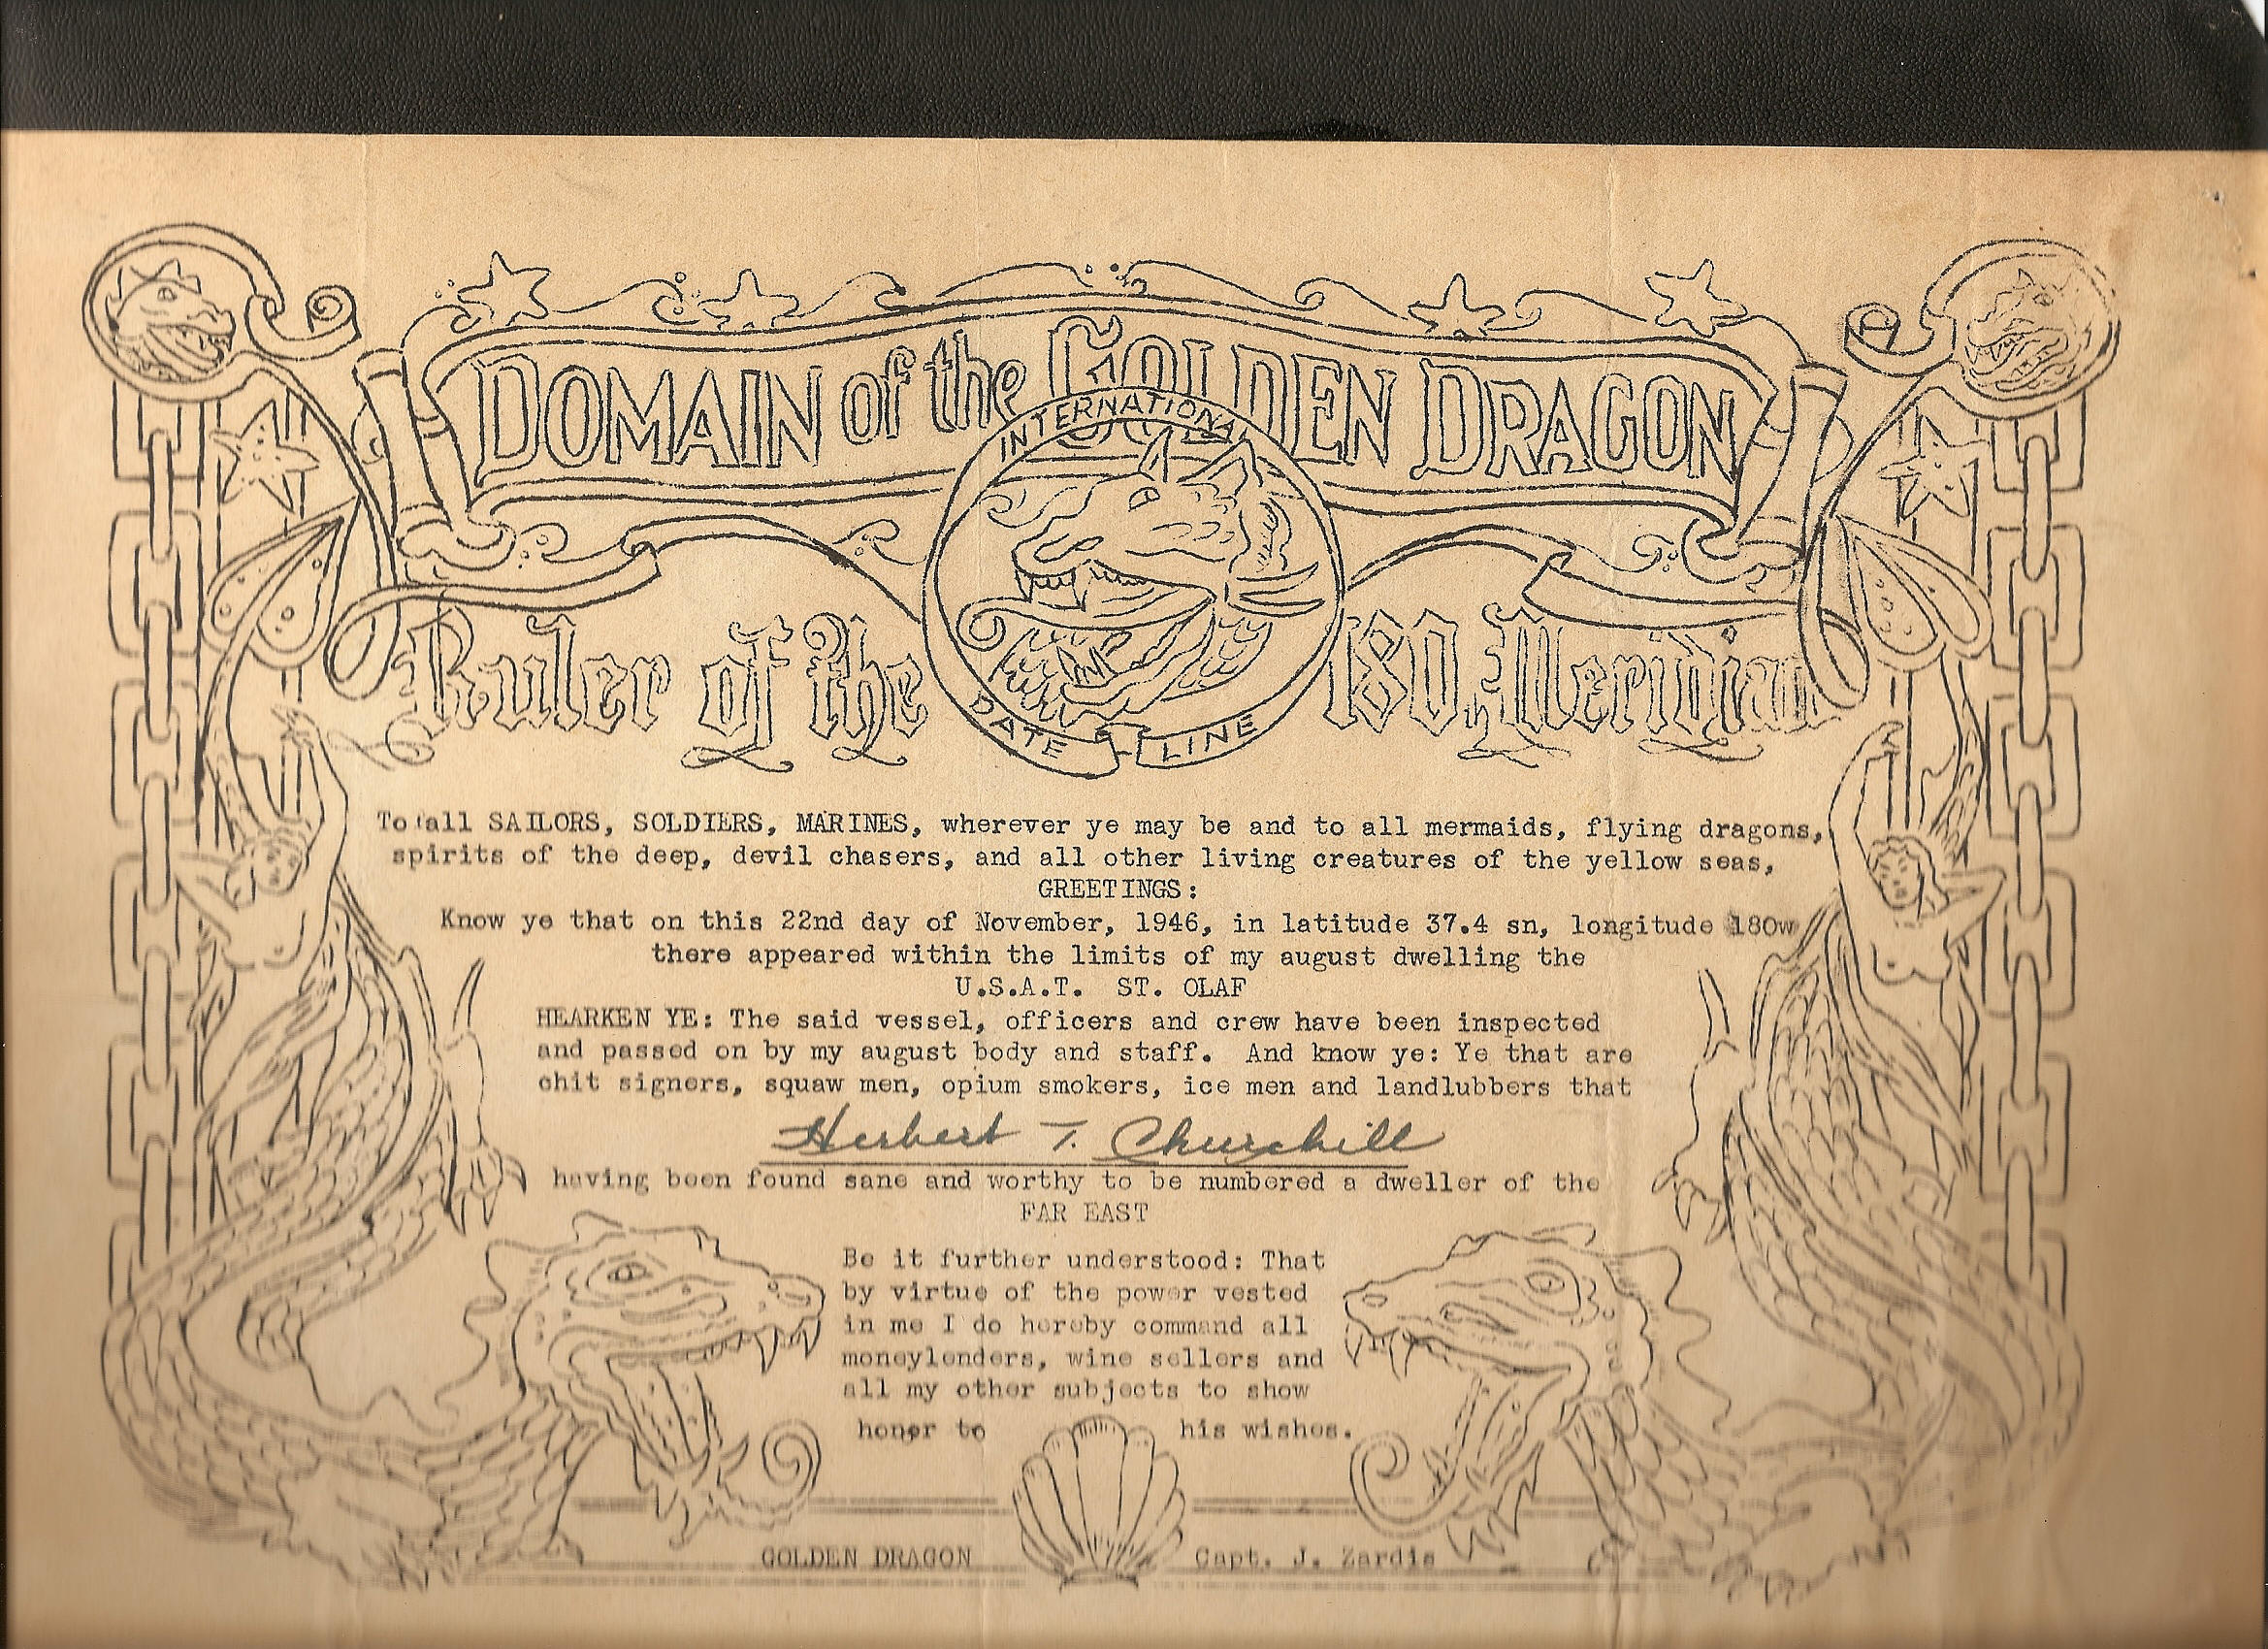 DOMAIN of the GOLDEN DRAGON
INTERNATIONAL
DATE LINE
Ruler of the 180th Meridian
To all SAILORS, SOLDIERS, MARINES, wherever ye may be and to all mermaids, flying dragons,
spirits of the deep, devil chasers, and all other living creatures of the yellow seas,
GREETINGS:
Know ye that on this 22nd day of November, 1946, in latitude 37.4 sn, longitude 180w
there appeared within the limits of my august dwelling the
U.S.A.T. ST. OLAF
HEARKEN YE: The said vessel, officers and crew have been inspected
and passed on by my august body and staff. And know ye: Ye that are
chit signers, squaw men, opium smokers, ice men and landlubbers that
Herbert T. Churchill
having been found sane and worthy to be numbered a dweller of the
FAR EAST
Be it further understood: That
by virtue of the power vested
in me I do hereby command all
moneylenders, wine sellers and
all my other subjects to show
honor to his wishes.
GOLDEN DRAGON Capt. J. Zardis